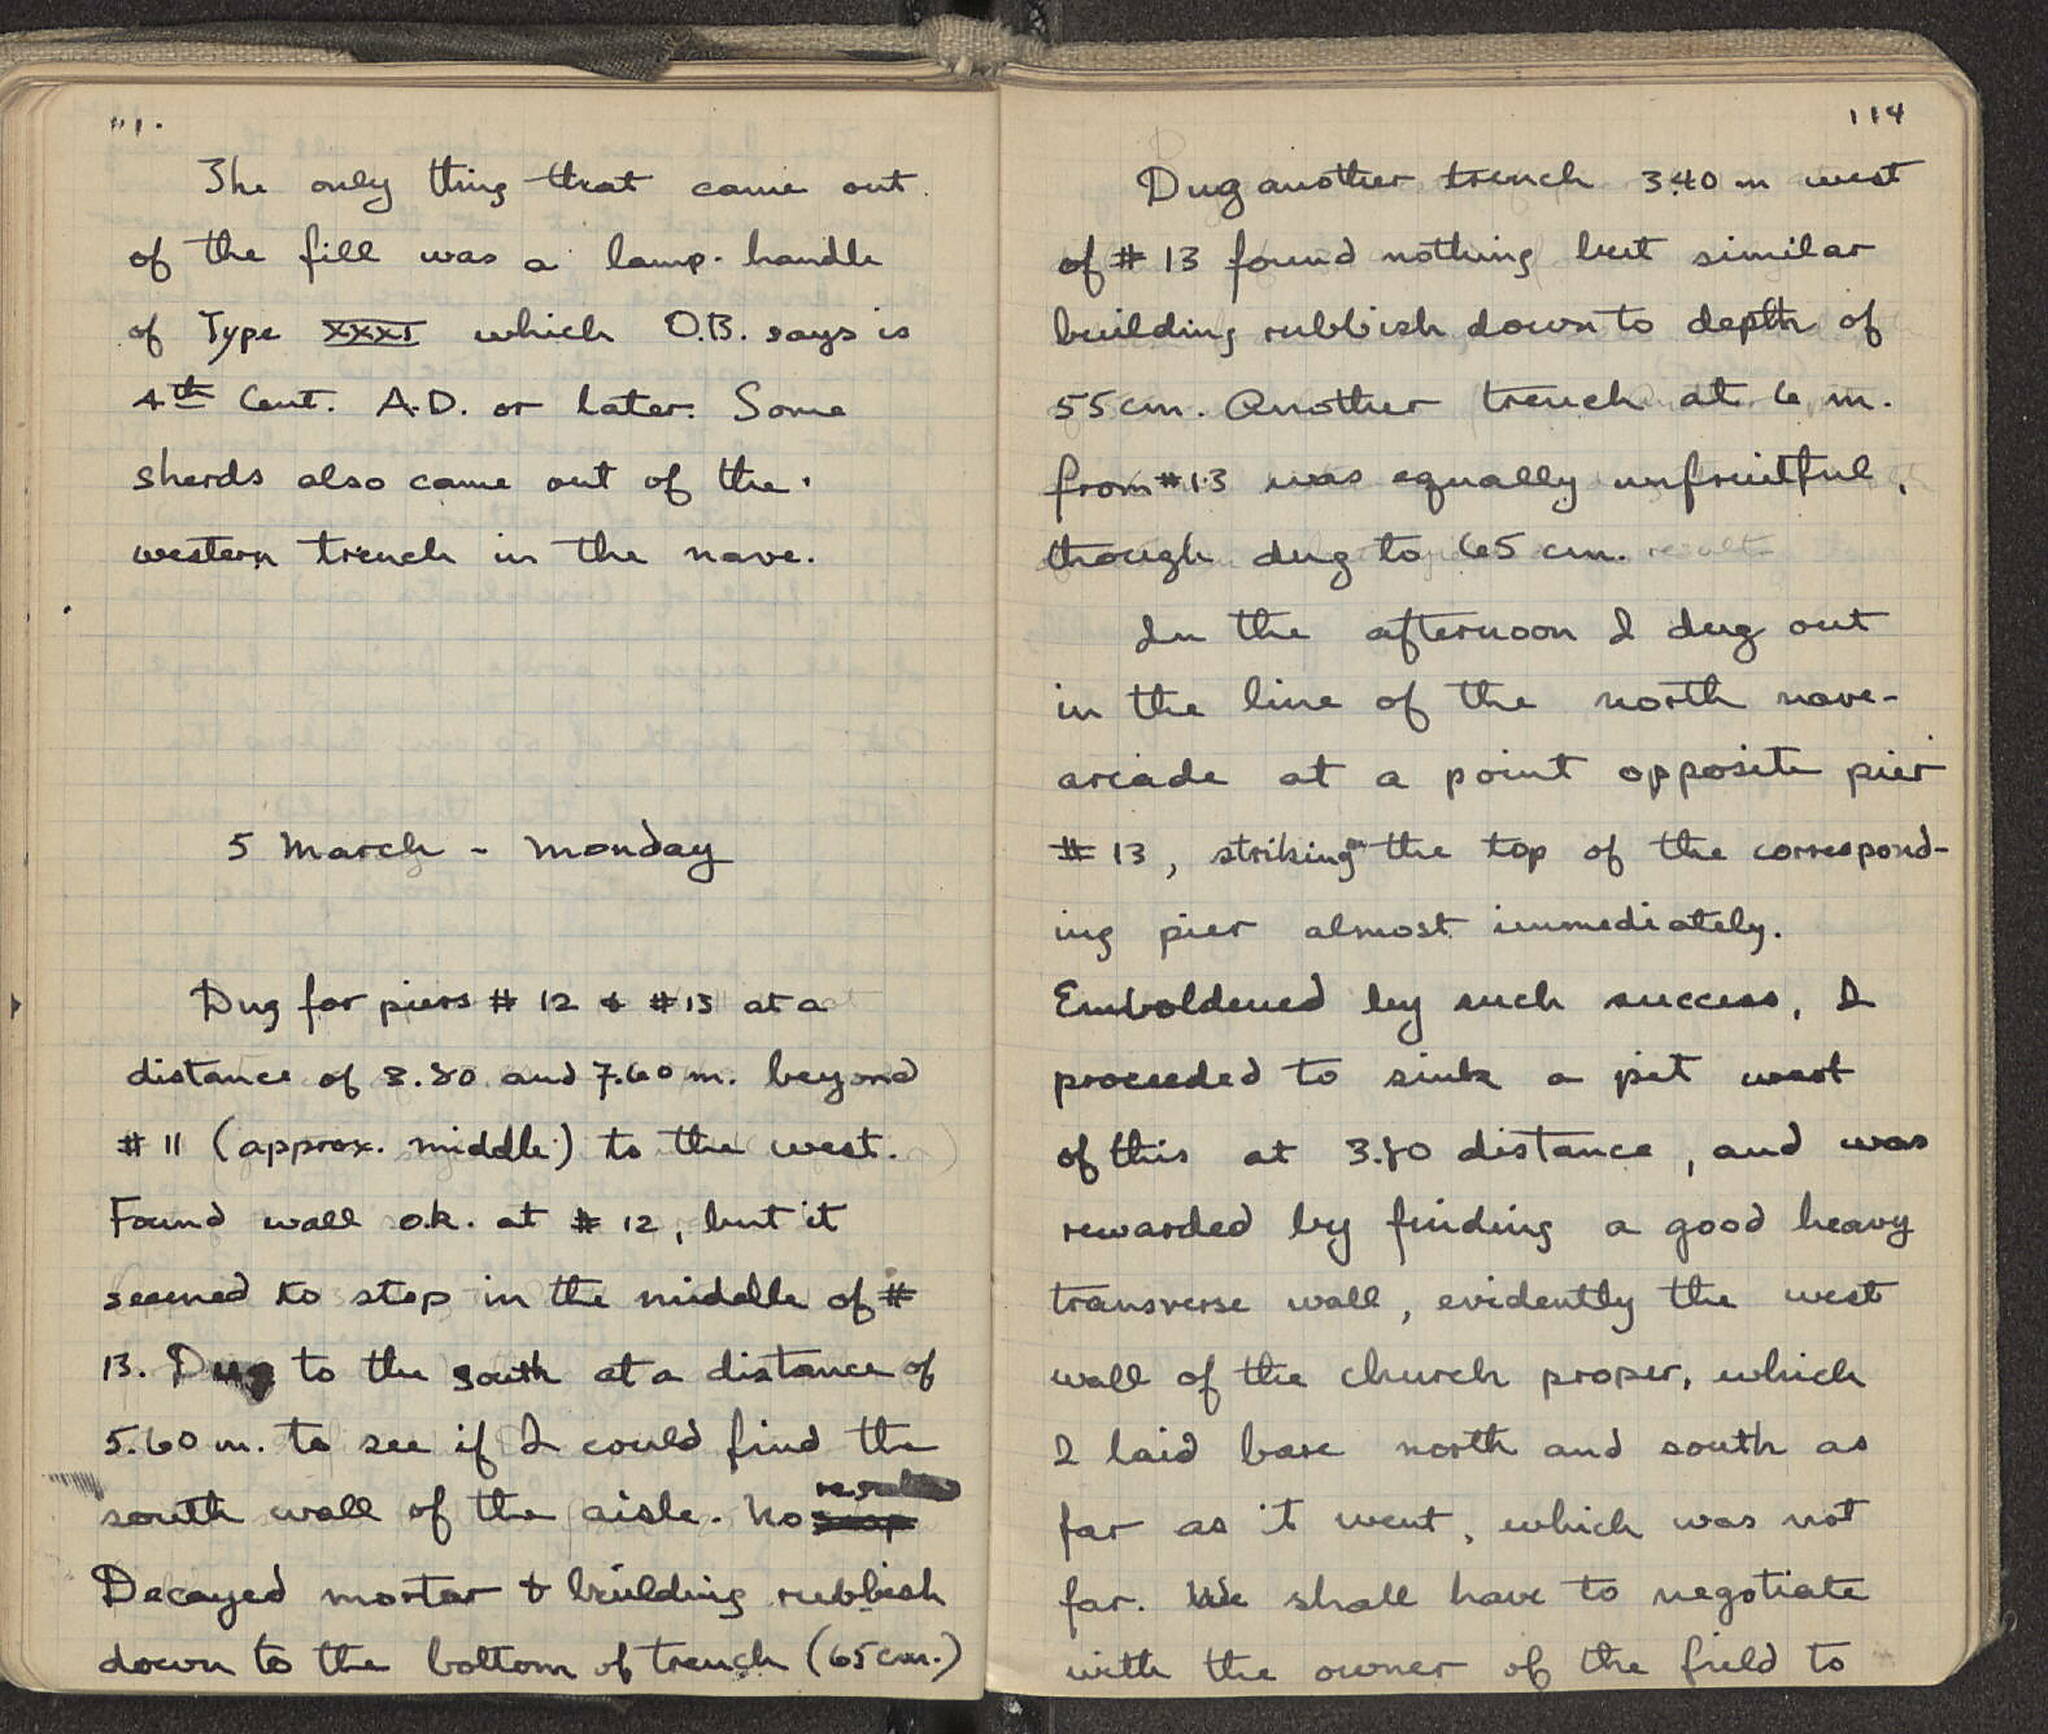 The only thing that came out
of the fill was a lamp-handle
of Type XXXI which O.B. says is
4th Cent. A.D. or later. Some
sherds also came out of the
western trench in the nave.
5 March - Monday
Dug for piers # 12 & # 13 at a
distance of 3.80 and 7.60 m. beyond
# 11 (approx. middle) to the west.
Found wall o.k. at # 12, but it
seemed to stop in the middle of #
13. Dug to the south at a distance of
5.60 m. to see if I could find the
result
south wall of the aisle. No
Decayed mortar & building rubbish
down to the bottom of trench (65 cm.)
114
Dug another trench 3.40 m west
of # 13 found nothing but similar
building rubbish down to depth of
55 cm. Another trench at 6 m.
from # 13 was equally unfruitful,
though dug to 65 cm. result
In the afternoon I dug out
in the line of the north nave-
arcade at a point opposite pier
# 13, striking the top of the correspond-
ing pier almost immediately.
Emboldened by such success, I
proceeded to sink a pit west
of this at 3.80 distance, and was
rewarded by finding a good heavy
transverse wall, evidently the west
wall of the church proper, which
I laid bare north and south as
far as it went, which was not
far. We shall have to negotiate
with the owner of the field to